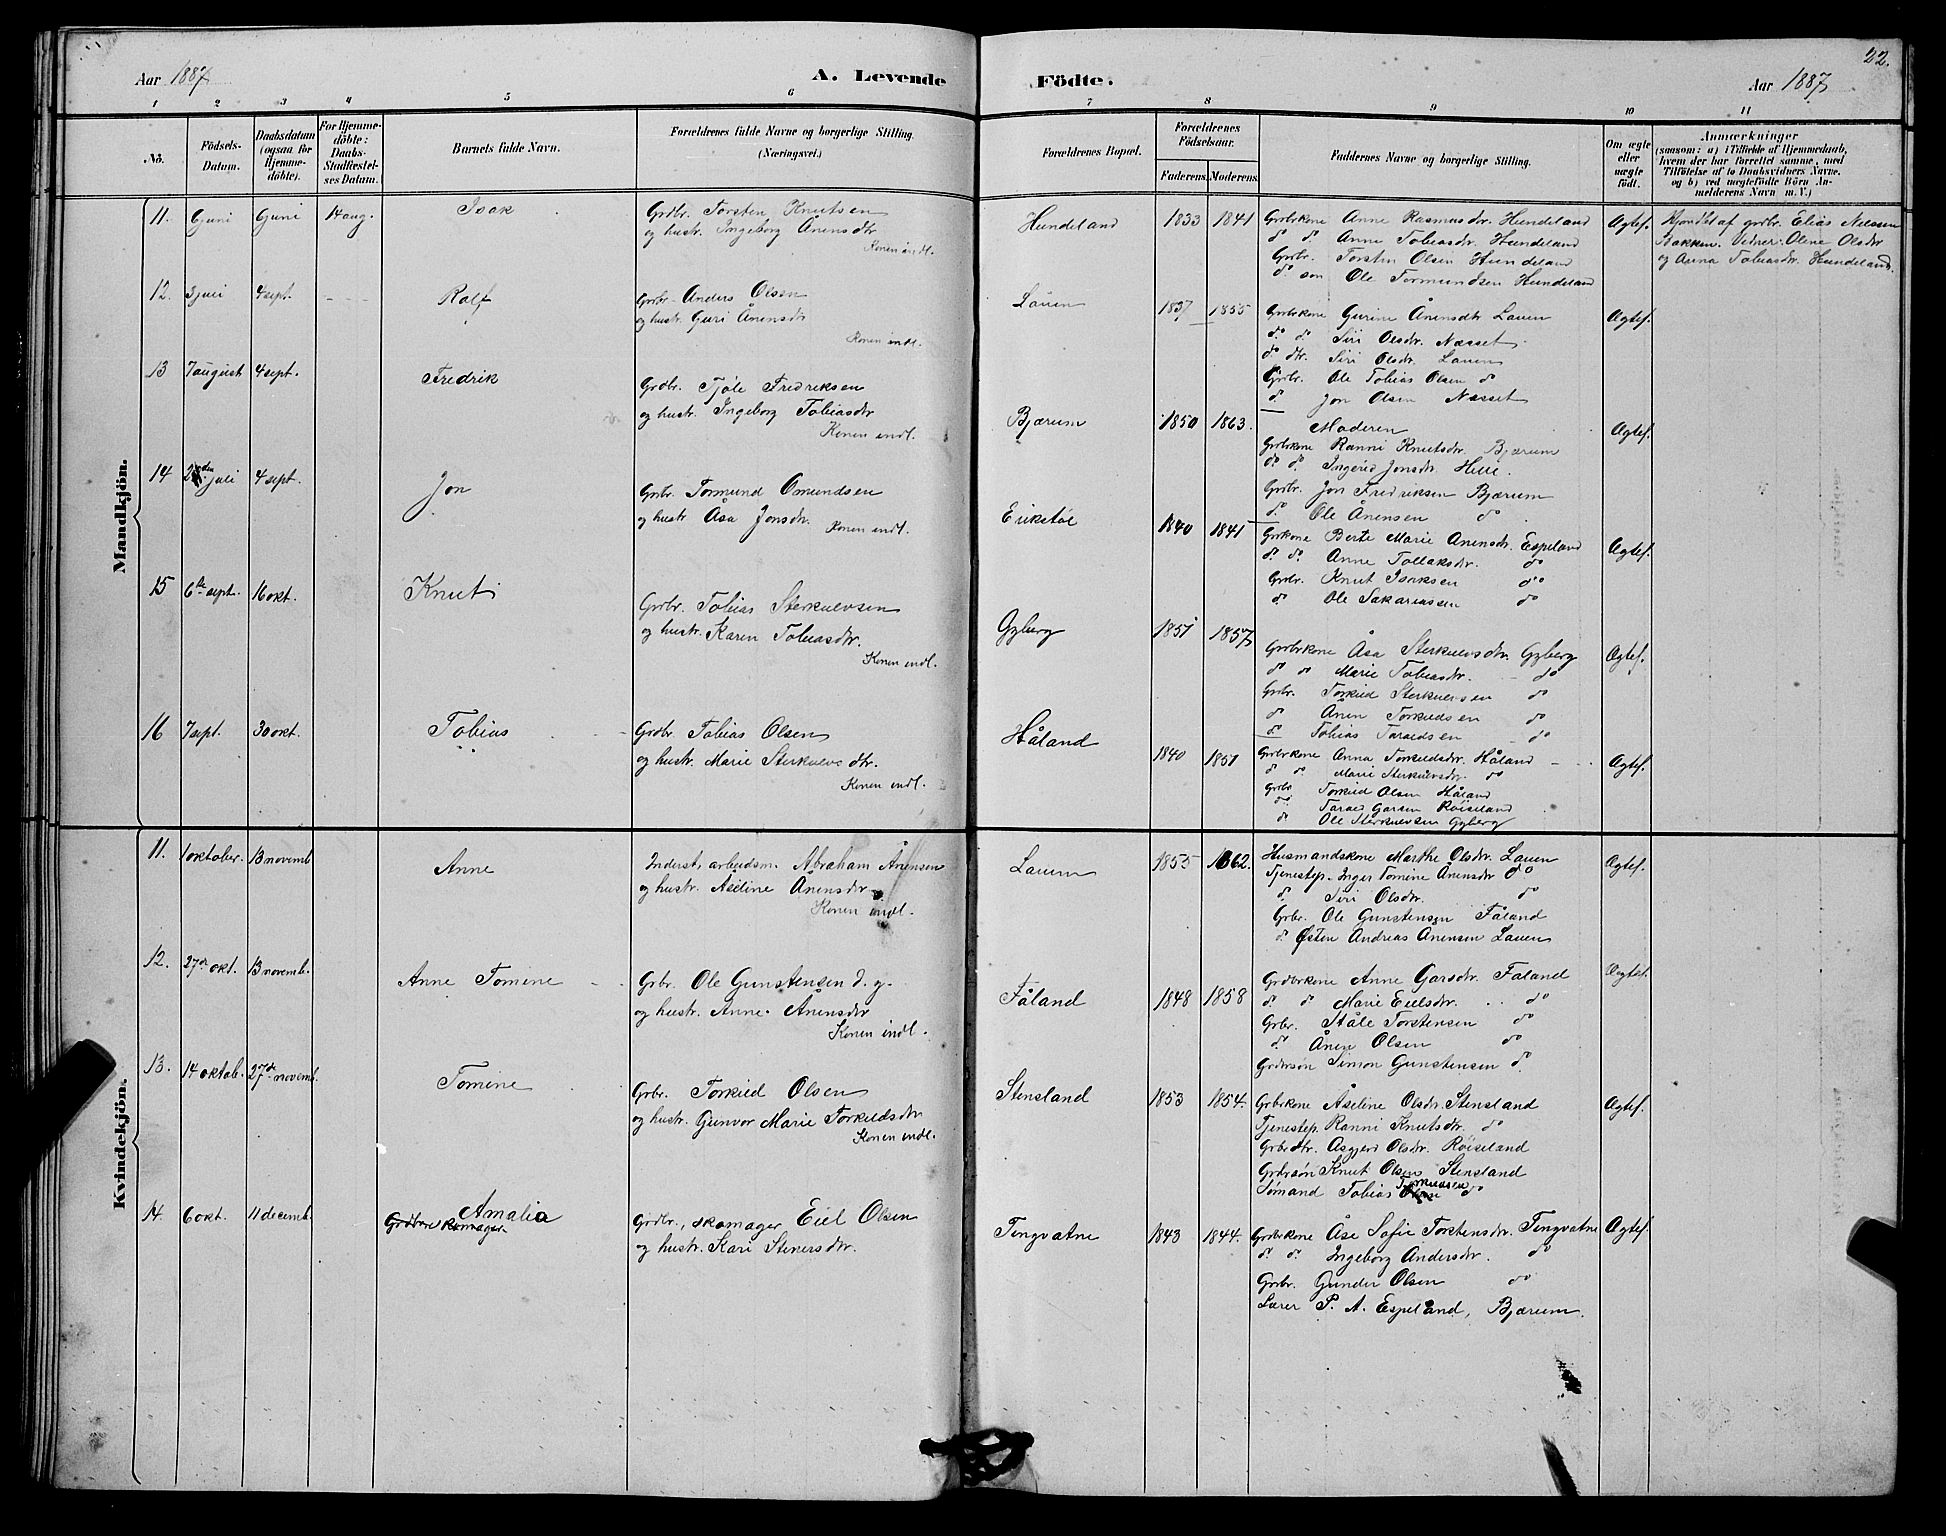 22.
Aar 1887
A. Levende
Födte.
Aar 1887
1 2 3 4 5 6 7 8 9 10 11
No.
Födsels-Datum.
Daabsdatum (ogsaa for Hjemme-döbte).
For Hjemme-döbte: Daabs-Stadfæstel-ses Datum.
Barnets fulde Navn.
Forældrenes fulde Navne og borgerlige Stilling.
(Næringsvei.)
Forældrenes Bopæl.
Forældrenes Födselsaar.
Faderens. Moderens.
Faddernes Navne og borgerlige Stilling.
Om ægte eller uægte født.
Anmærkninger
(saasom: a) i Tilfælde af Hjemmedaab,
hvem der har forrettet samme, med
Tilføielse af to Daabsvidners Navne.
og b) ved uægtefödte Börn An-
melderens Navn m. V.)
Mandkjön.
11. Juni Juni 14 aug. Isak
Grdbr. Torsten Knutsen
og hustr. Ingeborg Ånensdtr
Konen indl.
Hundeland 1833 1841
Grdbrkone Anne Rasmusdtr. Hundeland
do do. Anne Tobiasdtr. Hundeland
Grdbr. Torsten Olsen Hundeland
do søn Ole Tormundsen Hundeland
Ægtef.
Hjemdbt af grdbr. Elias Nilssen
Bakken. Vidner: Oline Olsdtr
og Anna Tobiasdtr. Hundeland.
12. 3 juli 4 sept. - - - Rolf
Grdbr. Anders Olsen
og hustr. Guri Ånensdtr
Konen indl.
Lauen 1837 1855
Grdbrkone Gurine Ånensdtr Lauen
do. do. Siri Olsdtr. Næsset
do dtr. Siri Olsdtr. Lauen
Grdbr. Ole Tobias Olsen do
do. Jon Olsen Næsset
Ægtef.
13 7 august 4 sept. Fredrik
Grdbr. Tjøle Fredriksen
og hustr. Ingeborg Tobiasdtr
Konen indl.
Bjærum 1850 1863.
Moderen
Grdbrkone Ranni Knutsdtr. Bjærum
do. do. Ingerid Jonsdtr. Hile.
Grdbr. Jon Fredriksen Bjærum
do. Ole Ånensen do
Ægtef.
14 2den juli 4 sept. Jon
Grdbr. Tormund Omundsen
og hustr. Åsa Jonsdtr.
Konen indl.
Erikstøl 1840 1841
Grdbrkone Berte Marie Anensdtr. Espeland
do do. Anne Tollaksdtr. do
Grdbr. Knut Isaksen do
do. Ole Sakariassen do
Ægtef.
15 6te sept. 16 okt. Knut
Grdbr. Tobias Sterkulvsen
og hustr. Karen Tobiasdtr.
Konen indl.
Gyberg 1851 1857
Grdbrkone Åsa Sterkulvsdtr. Gyberg
do do Marie Tobiasdtr. do
Grdbr. Torkild Sterkulvsen do
do Ånen Torkildsen do
do. Tobias Taraldsen do
Ægtef.
16 7 sept. 30 okt. Tobias
Grdbr. Tobias Olsen
og hustr. Marie Sterkulvsdtr.
Konen indl.
Håland 1840 1851
Grdbrkone Anna Torkildsdtr. Håland
do do Marie Sterkulvsdtr. do
Grdbr Torkild Olsen Håland
do. Tarald Garsen Røiseland
do. Ole Sterkulvsen Gyberg
Ægtef.
Kvindekjön.
11. 1 oktober. 13 novemb Anne
Inderst, arbeidsm. Abraham Ånensen
og hustr. Aseline Ånensdtr.
Konen indl.
Lauen 1855 1862.
Husmandskone Marthe Olsdtr. Lauen
Tjenestep. Inger Tomine Anensdtr do
do. Siri Olsdtr. do
Grbr. Ole Gunstensen Fåland
do. Østen Andreas Anensen Lauen
Ægtef.
12. 27de okt. 13 novemb. Anne Tomine
Grbr. Ole Gunstensen d. y.
og hustr. Anne Ånensdtr
Konen indl.
Fåland 1848 1858
Grdbrkone Anne Garsdtr. Faland
do. do Marie Eielsdtr. do
Grbr. Ståle Torstensen do
do. Ånen Olsen do
Grdbrsøn Simon Gunstensen do.
Ægtef.
13. 14 oktob. 27de novemb. Tomine
Grbr. Torkild Olsen
og hustr. Gunvor Marie Torkildsdtr
Konen indl.
Stensland 1853 1854.
Grbrkone Åseline Olsdtr. Stensland
Tjenestep. Ranni Knutsdtr. do
Grbrdtr. Asgjerd Olsdtr. Røiseland
Grdbrsøn Knut Olsen Stensland
Sømand Tobias Torkildsen do
Ægtef.
14. 6 okt. 11 decemb. Amalia
Grdbr. skomager
Grdbr., skomager Eiel Olsen
og hustr. Kari Steners dtr.
Tingvatne 1843 1844.
Grdbrkone Åse Sofie Torstensdtr. Tingvatne
do. do. Ingeborg Andersdtr. do
Grdbr. Gunder Olsen do
Lærer P. A. Espeland, Bjærum.
Ægtef.